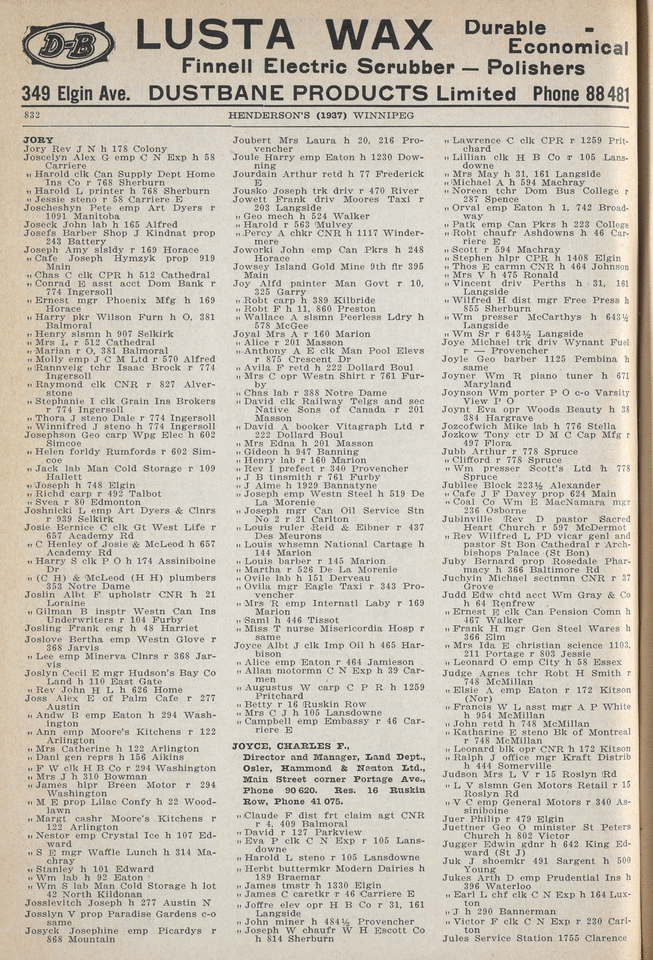 D-B
LUSTA WAX Durable -
Economical
Finnell Electric Scrubber — Polishers
349 Elgin Ave. DUSTBANE PRODUCTS Limited Phone 88 481
832 HENDERSON'S (1937) WINNIPEG
JORY
Jory Rev J N h 178 Colony
Joscelyn Alex G emp C N Exp h 58
Carriere
„ Harold clk Can Supply Dept Home
Ins Co r 768 Sherburn
„ Harold L printer h 768 Sherburn
„ Jessie steno r 58 Carriere E
Joscheshyn Pete emp Art Dyers r
1091 Manitoba
Joseck John lab h 165 Alfred
Josefs Barber Shop J Kindnat prop
243 Battery
Joseph Amy slsldy r 169 Horace
„ Cafe Joseph Hymzyk prop 919
Main
„ Chas C clk CPR h 512 Cathedral
„ Conrad E asst acct Dom Bank r
774 Ingersoll
„ Ernest mgr Phoenix Mfg h 169
Horace
„ Harry pkr Wilson Furn h O, 381
Balmoral
„ Henry slsmn h 907 Selkirk
„ Mrs L r 512 Cathedral
„ Marian r O, 381 Balmoral
„ Molly emp J C M Ltd r 570 Alfred
„ Rannveig tchr Isaac Brock r 774
Ingersoll
„ Raymond clk CNR r 827 Alver-
stone
„ Stephanie I clk Grain Ins Brokers
r 774 Ingersoll
„ Thora J steno Dale r 774 Ingersoll
„ Winnifred J steno h 774 Ingersoll
Josephson Geo carp Wpg Elec h 602
Simcoe
„ Helen forldy Rumfords r 602 Sim-
coe
„ Jack lab Man Cold Storage r 109
Hallett
„ Joseph h 748 Elgin
„ Richd carp r 492 Talbot
„ Svea r 80 Edmonton
Joshnicki L emp Art Dyers & Clnrs
r 939 Selkirk
Josie Bernice C clk Gt West Life r
657 Academy Rd
„ C Henley of Josie & McLeod h 657
Academy Rd
„ Harry S clk P O h 174 Assiniboine
Dr
„ (C H) & McLeod (H H) plumbers
353 Notre Dame
Joslin Albt F upholstr CNR h 21
Loraine
„ Gilman B insptr Westn Can Ins
Underwriters r 104 Furby
Josling Frank eng h 48 Harriet
Joslove Bertha emp Westn Glove r
368 Jarvis
„ Lee emp Minerva Clnrs r 368 Jar-
vis
Joslyn Cecil E mgr Hudson's Bay Co
Land h 110 East Gate
„ Rev John H L h 626 Home
Joss Alex E of Palm Cafe r 277
Austin
„ Andw B emp Eaton h 294 Wash-
ington
„ Ann emp Moore's Kitchens r 122
Arlington
„ Mrs Catherine h 122 Arlington
„ Danl gen reprs h 156 Aikins
„ F W clk H B Co r 294 Washington
„ Mrs J h 310 Bowman
„ James hlpr Breen Motor r 294
Washington
„ M E prop Lilac Confy h 22 Wood-
lawn
„ Margt cashr Moore's Kitchens r
122 Arlington
„ Nestor emp Crystal Ice h 107 Ed-
ward
„ S E mgr Waffle Lunch h 314 Ma-
chray
„ Stanley h 101 Edward
„ Wm lab h 92 Eaton
„ Wm S lab Man Cold Storage h lot
42 North Kildonan
Josslevitch Joseph h 277 Austin N
Josslyn V prop Paradise Gardens c-o
same
Josyck Josephine emp Picardys r
868 Mountain
Joubert Mrs Laura h 20, 216 Pro-
vencher
Joule Harry emp Eaton h 1230 Dow-
ning
Jourdain Arthur retd h 77 Frederick
E
Jousko Joseph trk driv r 470 River
Jowett Frank driv Moores Taxi r
203 Langside
„ Geo mech h 524 Walker
„ Harold r 563 Mulvey
„ Percy A chkr CNR h 1117 Winder-
mere
Joworki John emp Can Pkrs h 248
Horace
Jowsey Island Gold Mine 9th flr 395
Main
Joy Alfd painter Man Govt r 10,
325 Garry
„ Robt carp h 389 Kilbride
„ Robt F h 11, 860 Preston
„ Wallace A slsmn Peerless Ldry h
578 McGee
Joyal Mrs A r 160 Marion
„ Alice r 201 Masson
„ Anthony A E clk Man Pool Elevs
r 875 Crescent Dr
„ Avila F retd h 222 Dollard Boul
„ Mrs C opr Westn Shirt r 761 Fur-
by
„ Chas lab r 388 Notre Dame
„ David clk Railway Telgs and sec
Native Sons of Canada r 201
Masson
„ David A booker Vitagraph Ltd r
222 Dollard Boul
„ Mrs Edna h 201 Masson
„ Gideon h 947 Banning
„ Henry lab r 160 Marion
„ Rev I prefect r 340 Provencher
„ J B tinsmith r 761 Furby
„ J Aime h 1929 Bannatyne
„ Joseph emp Westn Steel h 519 De
La Morenie
„ Joseph mgr Can Oil Service Stn
No 2 r 21 Carlton
„ Louis ruler Reid & Eibner r 437
Des Meurons
„ Louis whsemn National Cartage h
144 Marion
„ Louis barber r 145 Marion
„ Martha r 526 De La Morenie
„ Ovile lab h 151 Derveau
„ Ovila mgr Eagle Taxi r 343 Pro-
vencher
„ Mrs R emp Internatl Laby r 169
Marion
„ Saml h 446 Tissot
„ Miss T nurse Misericordia Hosp r
same
Joyce Albt J clk Imp Oil h 465 Har-
bison
„ Alice emp Eaton r 464 Jamieson
„ Allan motormn C N Exp h 39 Car-
men
„ Augustus W carp C P R h 1259
Pritchard
„ Betty r 16 Ruskin Row
„ Mrs C J h 105 Lansdowne
„ Campbell emp Embassy r 46 Car-
riere E
JOYCE, CHARLES F.,
Director and Manager, Land Dept.,
Osler, Hammond & Nanton Ltd.,
Main Street corner Portage Ave.,
Phone 90 620. Res. 16 Ruskin
Row, Phone 41 075.
„ Claude F dist frt claim agt CNR
r 4, 409 Balmoral
„ David r 127 Parkview
„ Eva P clk C N Exp r 105 Lans-
downe
„ Harold L steno r 105 Lansdowne
„ Herbt buttermkr Modern Dairies h
189 Braemar
„ James tmstr h 1330 Elgin
„ James C caretkr r 46 Carriere E
„ Joffre elev opr H B Co r 31, 161
Langside
„ John miner h 484½ Provencher
„ Joseph W chaufr W H Escott Co
h 814 Sherburn
„ Lawrence C clk CPR r 1259 Prit-
chard
„ Lillian clk H B Co r 105 Lans-
downe
„ Mrs May h 31, 161 Langside
„ Michael A h 594 Machray
„ Noreen tchr Dom Bus College r
287 Spence
„ Orval emp Eaton h 1, 742 Broad-
way
„ Patk emp Can Pkrs h 223 College
„ Robt chaufr Ashdowns h 46 Car-
riere E
„ Scott r 594 Machray
„ Stephen hlpr CPR h 1408 Elgin
„ Thos E carmn CNR h 464 Johnson
„ Mrs V h 475 Ronald
„ Vincent driv Perths h 31, 161
Langside
„ Wilfred H dist mgr Free Press h
855 Sherburn
„ Wm presser McCarthys h 643½
Langside
„ Wm Sr r 643½ Langside
Joye Michael trk driv Wynant Fuel
r — Provencher
Joyle Geo barber 1125 Pembina h
same
Joyner Wm R piano tuner h 671
Maryland
Joynson Wm porter P O c-o Varsity
View P O
Joynt Eva opr Woods Beauty h 38
384 Hargrave
Jozcofwich Mike lab h 776 Stella
Jozkow Tony ctr D M C Cap Mfg r
497 Flora
Jubb Arthur r 778 Spruce
„ Clifford r 778 Spruce
„ Wm presser Scott's Ltd h 778
Spruce
Jubilee Block 223½ Alexander
„ Cafe J F Davey prop 624 Main
„ Coal Co Wm E MacNamara mgr
236 Osborne
Jubinville Rev D pastor Sacred
Heart Church r 597 McDermot
„ Rev Wilfred L PD vicar genl and
pastor St Bon Cathedral r Arch-
bishops Palace (St Bon)
Juby Bernard prop Rosedale Phar-
macy h 366 Baltimore Rd
Juchyin Michael sectnmn CNR r 37
Grove
Judd Edw chtd acct Wm Gray & Co
h 64 Renfrew
„ Ernest E clk Can Pension Comn h
467 Walker
„ Frank H mgr Gen Steel Wares h
366 Elm
„ Mrs Ida E christian science 1103,
211 Portage r 803 Jessie
„ Leonard O emp City h 58 Essex
Judge Agnes tchr Robt H Smith r
748 McMillan
„ Elsie A emp Eaton r 172 Kitson
(Nor)
„ Francis W L asst mgr A P White
h 954 McMillan
„ John retd h 748 McMillan
„ Katharine E steno Bk of Montreal
r 748 McMillan
„ Leonard blk opr CNR h 172 Kitson
„ Ralph J office mgr Kraft Distrib
h 444 Somerville
Judson Mrs L V r 15 Roslyn Rd
„ L V slsmn Gen Motors Retail r 15
Roslyn Rd
„ V C emp General Motors r 340 As-
siniboine
Juer Philip r 479 Elgin
Juettner Geo O minister St Peters
Church h 802 Victor
Jugger Edwin gdnr h 642 King Ed-
ward (St J)
Juk J shoemkr 491 Sargent h 500
Young
Jukes Arth D emp Prudential Ins h
396 Waterloo
„ Earl L chf clk C N Exp h 164 Lux-
ton
„ J h 290 Bannerman
„ Victor F clk C N Exp r 230 Carl-
ton
Jules Service Station 1755 Clarence